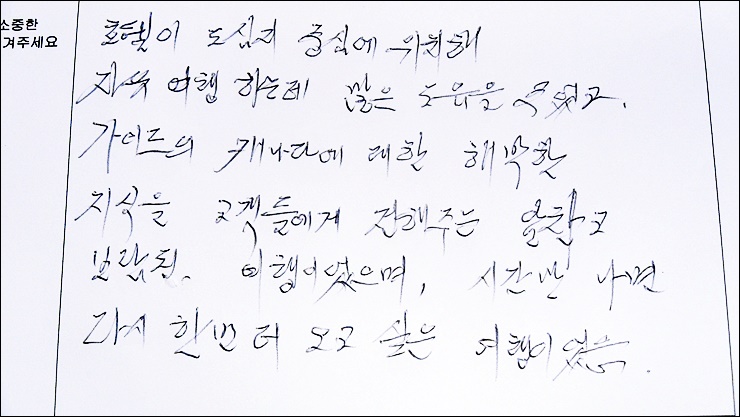 소중한
겨주세요
호텔이 도심의 중심에 위치해
자유 여행 하는데 많은 도움을 주었고,
가이드의 캐나다에 대한 해박한
지식을 고객들에게 전해주는 알찬고
보람된 여행이었으며, 시간만 나면
다시 한번 더 오고 싶은 여행이었음.